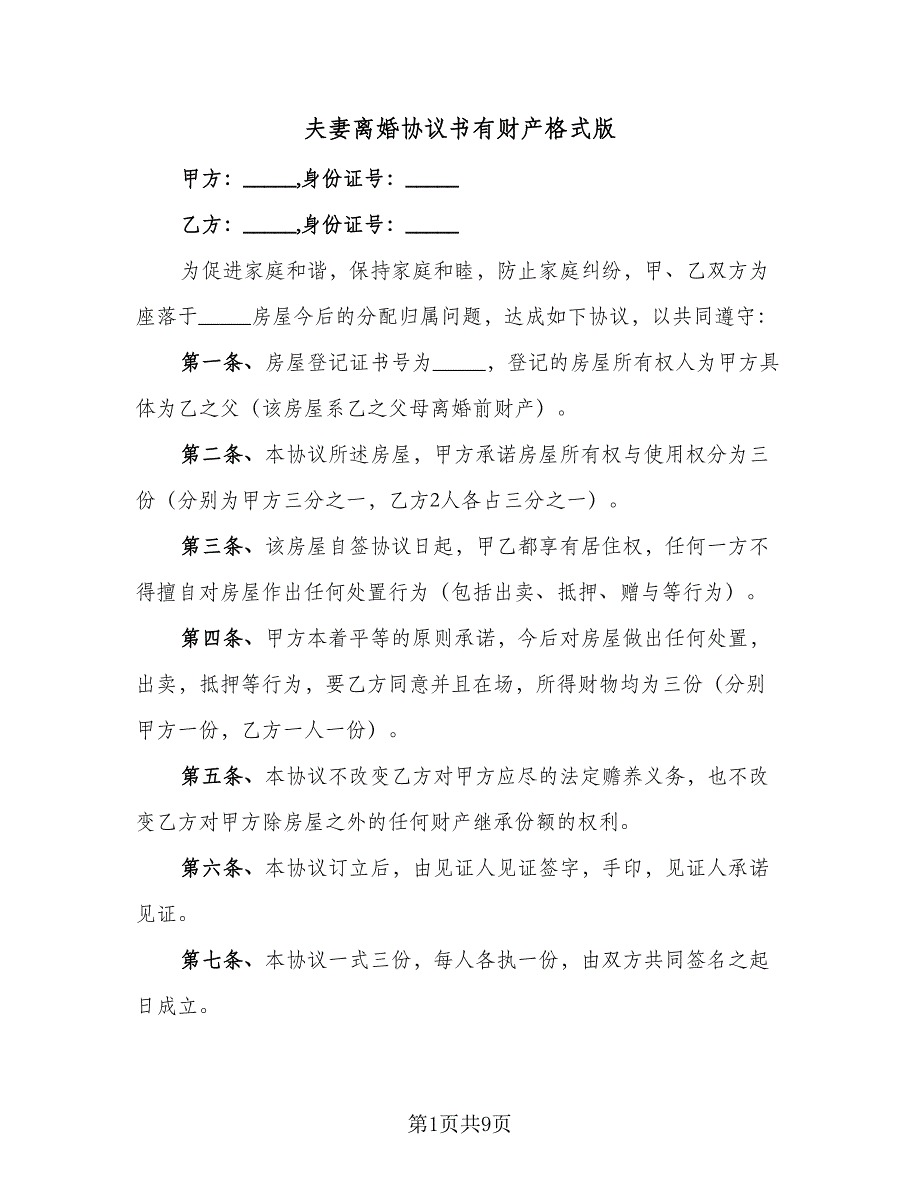 夫妻离婚协议书有财产格式版
甲方：_____,身份证号：_____
乙方：_____,身份证号：_____
为促进家庭和谐，保持家庭和睦，防止家庭纠纷，甲、乙双方为
座落于_____房屋今后的分配归属问题，达成如下协议，以共同遵守：
第一条、房屋登记证书号为_____，登记的房屋所有权人为甲方具
体为乙之父（该房屋系乙之父母离婚前财产）。
第二条、本协议所述房屋，甲方承诺房屋所有权与使用权分为三
份（分别为甲方三分之一，乙方2人各占三分之一）。
第三条、该房屋自签协议日起，甲乙都享有居住权，任何一方不
得擅自对房屋作出任何处置行为（包括出卖、抵押、赠与等行为）。
第四条、甲方本着平等的原则承诺，今后对房屋做出任何处置，
出卖，抵押等行为，要乙方同意并且在场，所得财物均为三份（分别
甲方一份，乙方一人一份）。
第五条、本协议不改变乙方对甲方应尽的法定赡养义务，也不改
变乙方对甲方除房屋之外的任何财产继承份额的权利。
第六条、本协议订立后，由见证人见证签字，手印，见证人承诺
见证。
第七条、本协议一式三份，每人各执一份，由双方共同签名之起
日成立。
第1页共9页